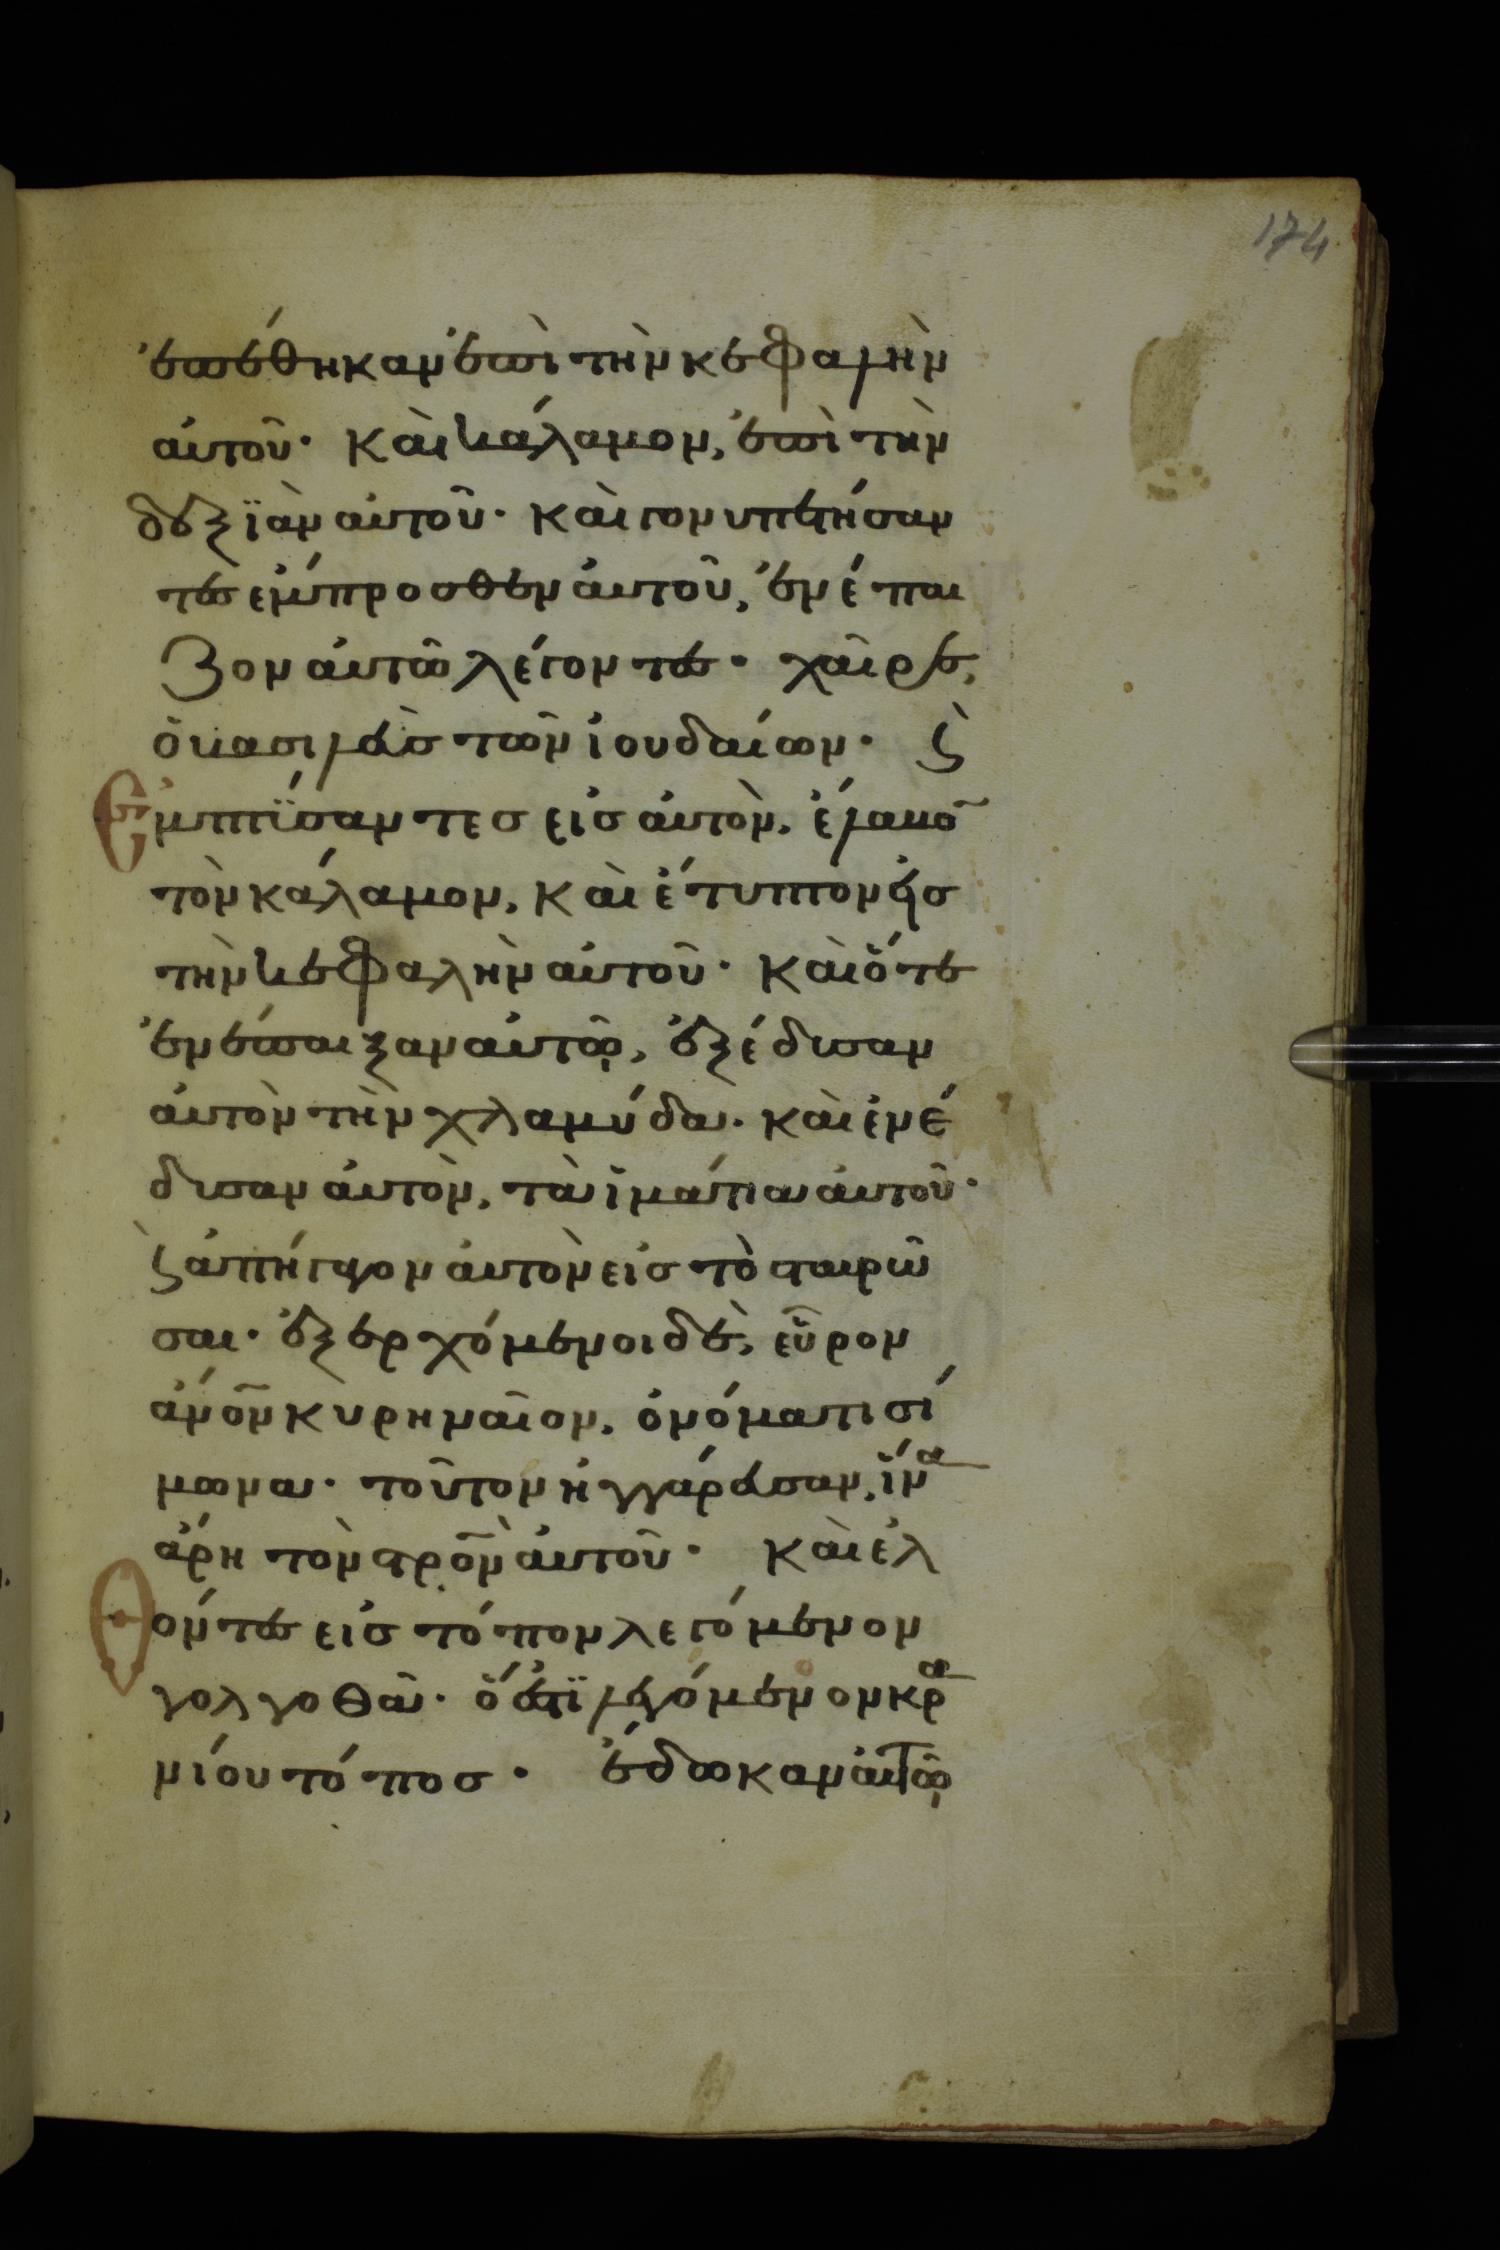 174
ἐπέθηκαν ἐπὶ τὴν κεφαλὴν
αὐτοῦ· καὶ κάλαμον, ἐπὶ τὴν
δεξϊὰν αὐτοῦ· καὶ γονυπετήσαν
τες ἔμπροσθεν αὐτοῦ, ἐνέπαι
ζον αὐτῶ λέγοντες· χαῖρε,
ὁ βασιλεὺς τῶν ἰουδαίων· ϗ
Ἐμπτϊσαντες εἰς αὐτὸν, ἔλαβο̅
τὸν κάλαμον, καὶ ἔτυπτον εἰς
τὴν κεφαλὴν αὐτοῦ· καὶ ὅτε
ἐνέπαιξαν αὐτῷ, ἐξέδυσαν
αὐτὸν τὴν χλαμύδα· καὶ ἐνέ
δυσαν αὐτὸν, τὰ ἱμάτια αὐτοῦ·
ϗ ἀπήγαγον αὐτὸν εἰς τὸ σταυρῶ
σαι· ἐξερχόμενοι δὲ, εὗρον
ἄν̅ο̅ν̅ κυρηναῖον, ὀνόματι σί
μωνα· τοῦτον ἠγγάρευσαν, ἵνα
ἄρη τὸν στρ̅ο̅ν̅ αὐτοῦ· καὶ ἐλ
Θόντες εἰς τόπον λεγόμενον
γολγοθᾶ· ὅ ἐστϊ λεγόμενον κρα
νίου τόπος· ἔδωκαν αὐτῷ